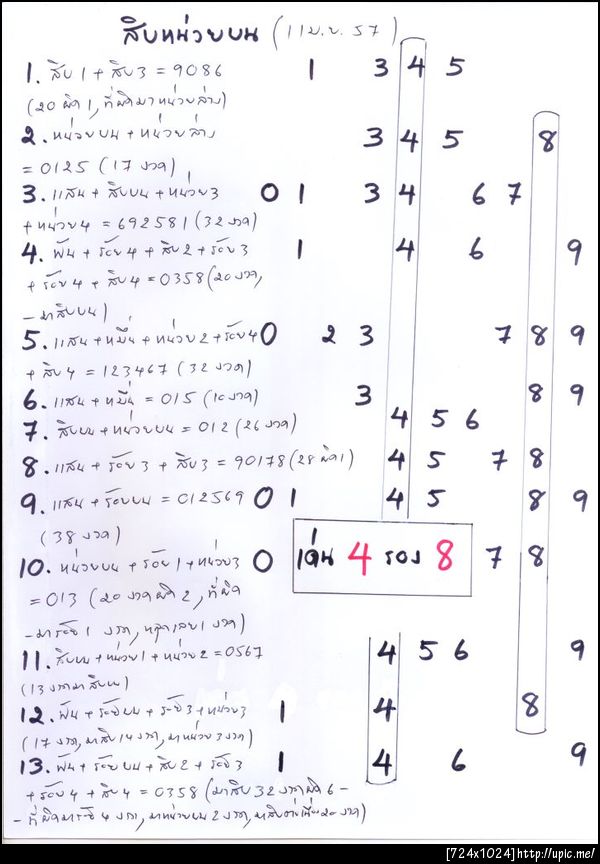 สิบหน่วยบน (1 เม.ย. 57)
1. สิบ 1 + สิบ 3 = 9086 1 3 4 5
(20 ผิด 1, ที่ผิดมาหน่วยล่าง)
2. หน่วยบน + หน่วยล่าง 3 4 5 8
= 0125 (17 งวด)
3. แสน + สิบบน + หน่วย 3 0 1 3 4 6 7
+ หน่วย 4 = 692581 (32 งวด)
4. พัน + ร้อย 4 + สิบ 2 + ร้อย 3 1 4 6 9
+ ร้อย 4 + สิบ 4 = 0358 (20 งวด,
- มาสิบบน)
5. แสน + หมื่น + หน่วย 2 + ร้อย 4 0 2 3 7 8 9
+ สิบ 4 = 123467 (32 งวด)
6. แสน + หมื่น = 015 (10 งวด) 3 8 9
7. สิบบน + หน่วยบน = 012 (26 งวด) 4 5 6
8. แสน + ร้อย 3 + สิบ 3 = 90178 (28 ผิด 1) 4 5 7 8
9. แสน + ร้อยบน = 012569 0 1 4 5 8 9
(38 งวด)
10. หน่วยบน + ร้อย 1 + หน่วย 3 0 เด่น 4 รอง 8 7 8
= 013 (20 งวดผิด 2, ที่ผิด
- มาร้อย 1 งวด, หลุดเลข 1 งวด)
11. สิบบน + หน่วย 1 + หน่วย 2 = 0567 4 5 6 9
(13 งวดมาสิบบน)
12. พัน + ร้อยบน + ร้อย 3 + หน่วย 3 1 4 8
(17 งวด, มาสิบ 14 งวด, มาหน่วย 3 งวด)
13. พัน + ร้อยบน + สิบ 2 + ร้อย 3 1 4 6 9
+ ร้อย 4 + สิบ 4 = 0358 (มาสิบ 32 งวดผิด 6 -
- ที่ผิดมาร้อย 4 งวด, มาหน่วยบน 2 งวด, มาสิบ 20 งวด)
[724x1024]http://upic.me/